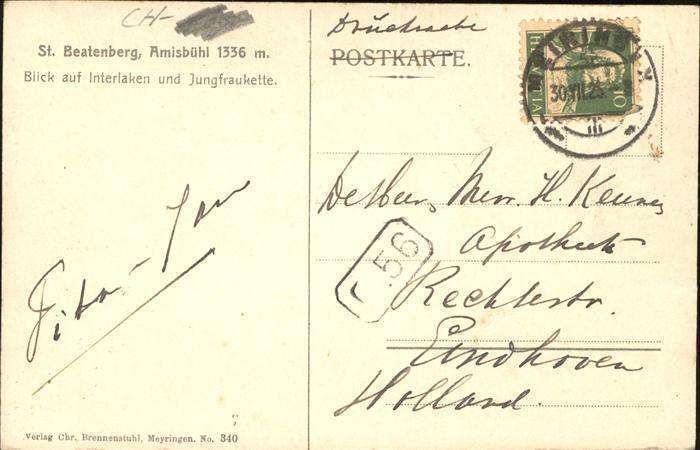 CH-
St. Beatenberg, Amisbühl 1336 m.
Blick auf Interlaken und Jungfraukette.
Drucksache
POSTKARTE.
HELVETIA
10
MEIRINGEN
30.VII.25
III
De Heer, Mevr. H.
Apotheek
56
Rechtestr.
Eindhoven
Holland.
Verlag Chr. Brennenstuhl, Meyringen. No. 340